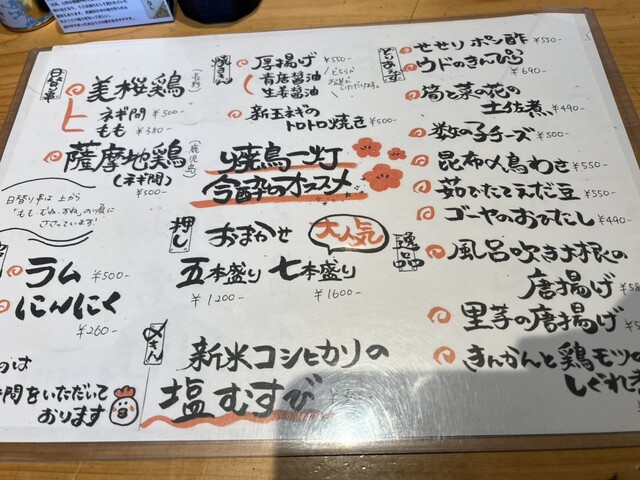 日替り串
美桜鶏
(長野)
ネギ間 ¥500-
もも ¥380-
薩摩地鶏
(鹿児島)
(ネギ間)
¥500-
日替り串は上から
「もも・むね・おね」の順に
ささっています!
ラム ¥500-
にんにく
¥260-
のは
時間をいただいて
おります
焼きもん
厚揚げ ¥550-
青唐醤油
生姜醤油
どちらか
お選び
いただけます。
新玉ネギの
トロトロ焼き ¥500-
焼鳥一灯
今酔のオススメ
押し
おまかせ
大人気
五本盛り 七本盛り
¥1200- ¥1600-
〆さん
新米コシヒカリの
塩むすび
とりあえず
せせりポン酢 ¥550-
ウドのきんぴら
¥690-
筍と菜の花の
土佐煮 ¥490-
数の子チーズ ¥530-
昆布〆鳥わさ ¥550-
茹でたてえだ豆 ¥550-
ゴーヤのおひたし ¥490-
逸品
風呂吹き大根の
唐揚げ ¥58
里芋の唐揚げ ¥5
きんかんと鶏モツの
しぐれ煮